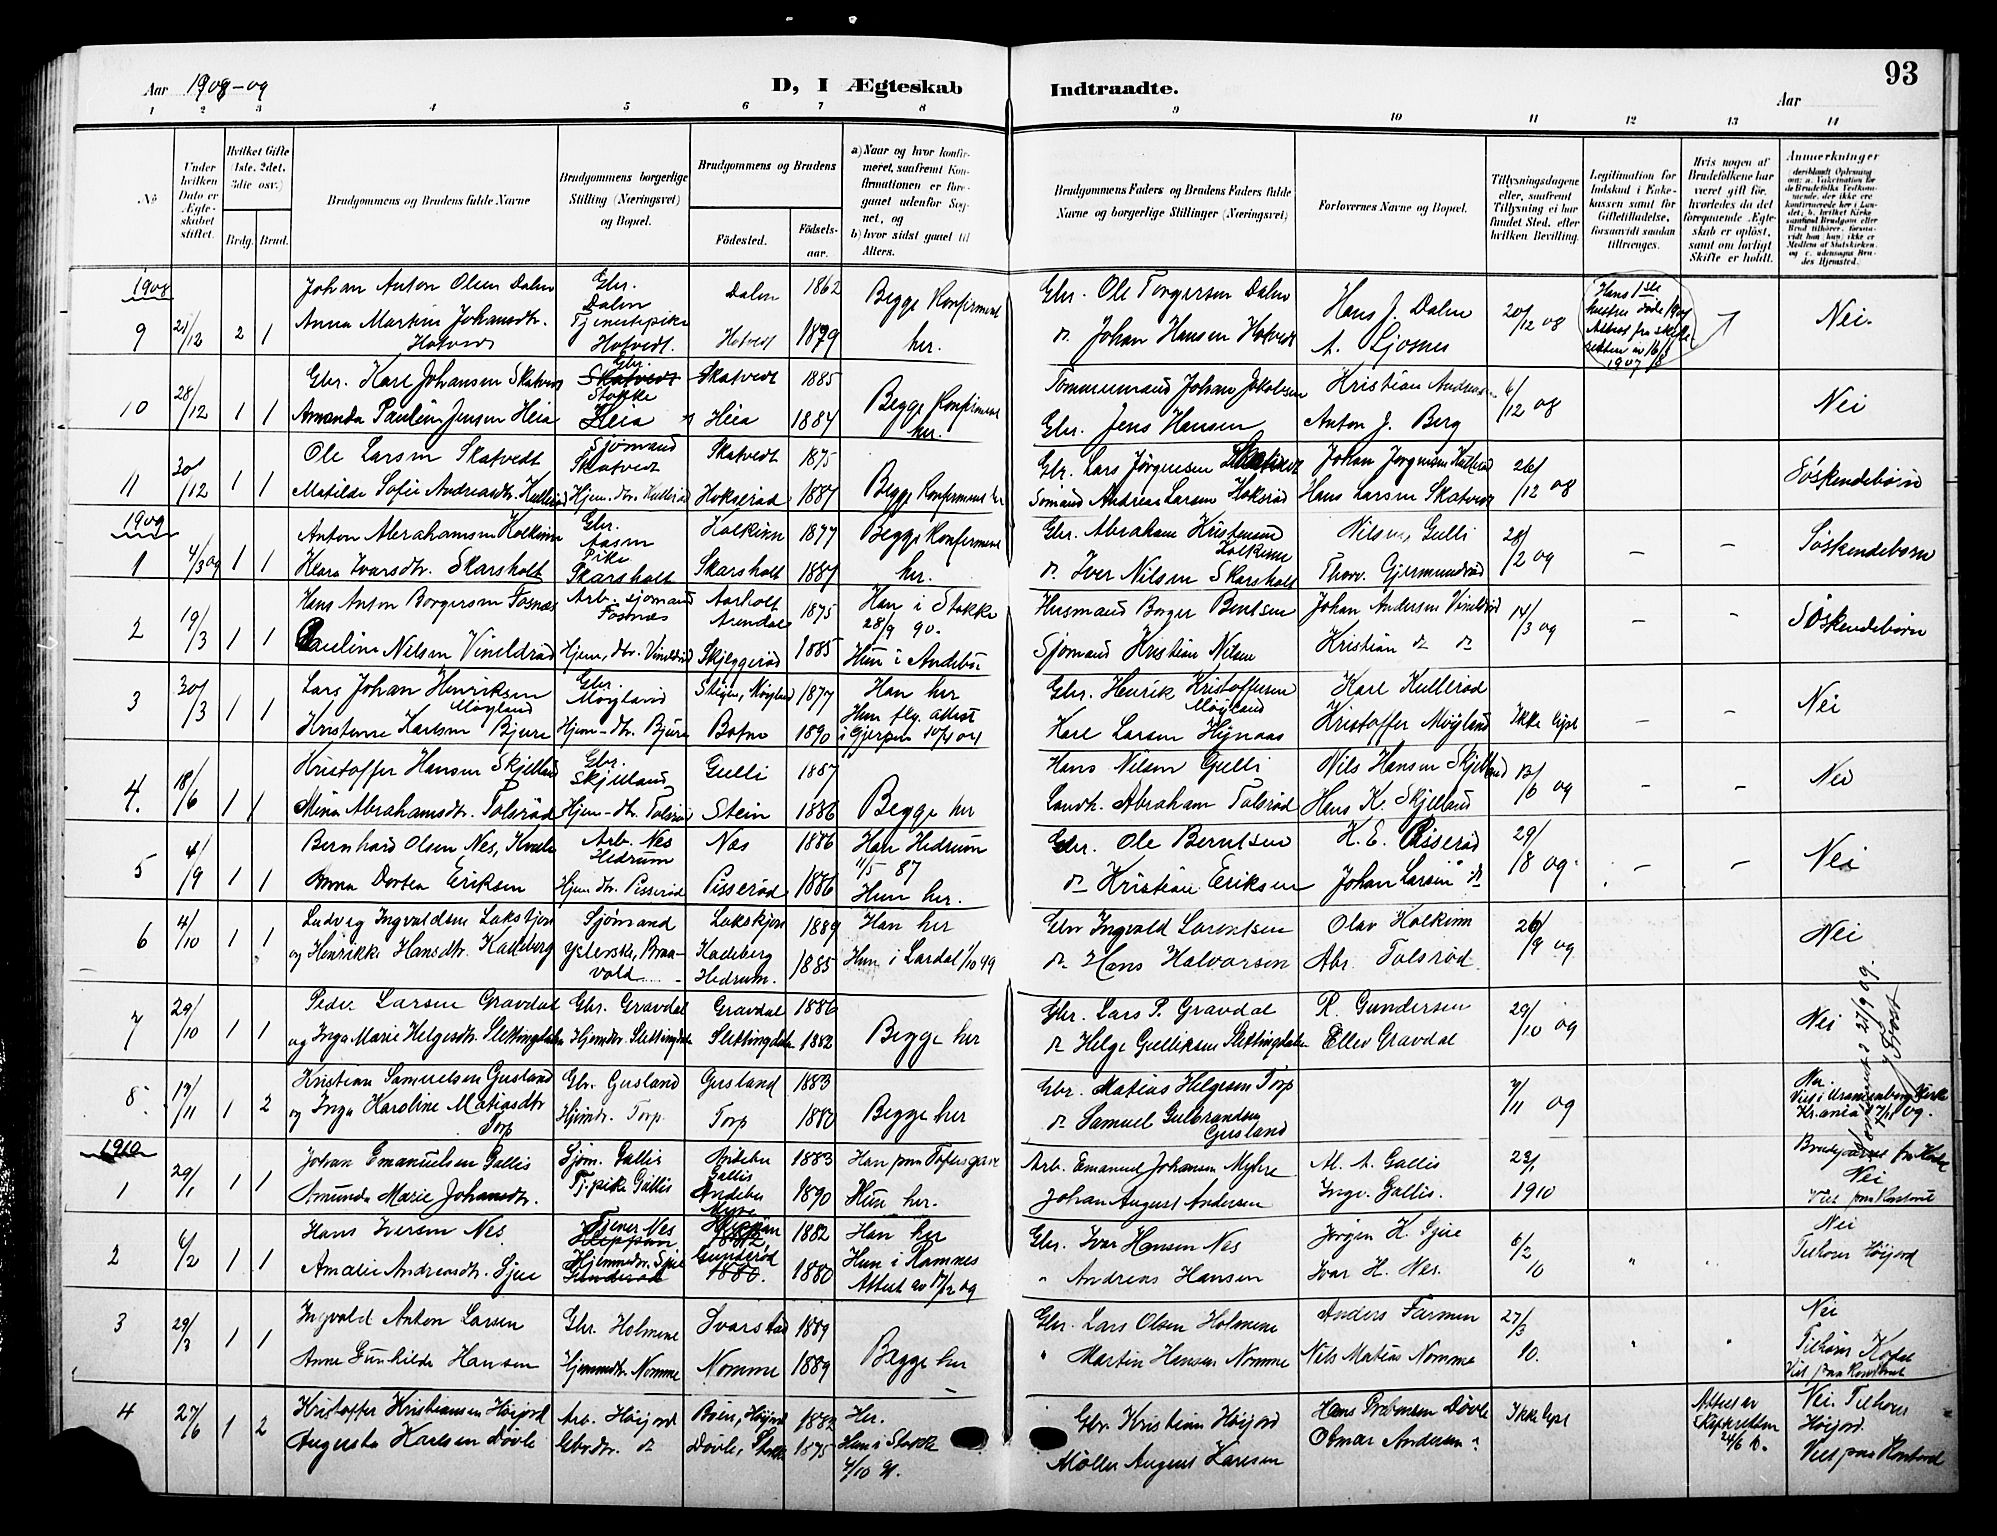 93
Aar 1908-09
D, I Ægteskab Indtraadte.
Aar
1 2 3 4 5 6 7 8 9 10 11 12 13 14
No
Under hvilken Dato er Ægteskabet stiftet.
Hvilket Gifte (1ste, 2det, 3die osv.)
Brdg. Brud.
Brudgommens og Brudens fulde Navne
Brudgommens borgerlige Stilling (Næringsvei) og Bopæl.
Brudgommens og Brudens
Fødested. Fødsels-aar.
a) Naar og hvor konfirmeret, saafremt Konfirmationen er foregaaet udenfor Sognet, og
b) hvor sidst gaaet til Alters.
Brudgommens Faders og Brudens Faders fulde Navne og borgerlige Stillinger (Næringsvei)
Forlovernes Navne og Bopæl.
Tillysningsdagene eller, saafremt Tillysning ei har fundet Sted, efter hvilken Bevilling.
Legitimation for Indskud i Enkekassen samt for Giftetilladelse, forsaavidt saadan tiltrænges.
Hvis nogen af Brudefolkene har været gift før, hvorledes da det foregaaende Ægteskab er opløst, samt om lovligt Skifte er holdt.
Anmerkninger
1908
9 21/12 2 1 Johan Anton Olsen Dalen Gbr. Dalen Dalen 1862 Begge Konfirmert her. Gbr. Ole Torgersen Dalen Hans J. Dalen 20/12 08 Nei.
Anna Martine Johansdtr. Hotvedt Tjenestepike Hotvedt. Hotvedt 1879 Johan Hansen Hotvedt A. Ljosnes
Hans 1ste hustru døde 1907 Attest fra skifteretten av 16/8 1907
10 28/12 1 1 Gbr. Karl Johansen Skatvedt Gbr. Skatvedt Stokke Skatvedt 1885 Begge Konfirmert her. Tømmermand Johan Jakobsen Kristian Andreas 6/12 08 Nei
Amanda Pauline Jensen Heia Heia Heia 1884 Gbr. Jens Hansen Anton J. Berg
11 20/12 1 1 Ole Larsen Skatvedt Sjømand Skatvedt Skatvedt 1875 Begge Konfirmert her Gbr. Lars Jørgensen Skatvedt Johan Jørgensen Kullerød 26/12 08 Søskendebørn
Matilde Sofie Andreasdtr. Kullerød Hjem. dtr. Kullerød Hokserød 1887 Sømand Andreas Larsen Hokserød Hans Larsen Skatvedt
1909
1 4/3 09 1 1 Anton Abrahamsen Holkinn Gbr. Aasen Holkinn 1877 Begge Konfirmert her. Gbr. Abraham Kristensen Holkinn Nilsen, Gulli 28/2 09 – – Søskendebørn
Klara Ivarsdtr. Skarsholt Pike Skarsholt Skarsholt 1887 Iver Nilsen Skarsholt Thorv. Gjermundrød
2 19/3 1 1 Hans Anton Borgersen Fosnæs Arb. sjømand Fosnæs Aarholt Arendal 1875 Han i Stokke 28/9 90. Husmand Borger Bentsen Johan Andersen Vineldrød 14/3 09 – – Søskendebørn
Pauline Nilsen Vineldrød Hjem. dtr. Vineldrød Skjeggerød 1885 Hun i Andebu Sjømand Kristian Nilsen Kristian
3 30/3 1 1 Lars Johan Henriksen Møyland Gbr. Møyland Stigen, Møyland 1877 Han her Gbr. Henrik Kristoffersen Møyland Karl Kullerød Ikke lyst – – Nei
Kristense Karlsen Bjure Hjem-dtr. Bjure Botne 1890 Hun flg. attest i Gjerpen 10/4 04 Karl Larsen Kristoffer Møyland
4. 18/6 1 1 Kristoffer Hansen Skjelland Gbr. Skjelland Gulli 1887 Begge her Hans Nilsen Gulli Nils Hansen Skjelland 13/6 09 – – Nei
Mina Abrahamsdtr. Tolsrød Hjem-dtr. Tolsrød Stein 1886 Landh. Abraham Tolsrød Hans Kr. Skjelland
5 4/9 1 1 Bernhard Olsen Nes, Arb. Nes Hedrum Næs 1886 Han Hedrum 11/5 87 Gbr. Ole Berntsen K. E. Pisserød 29/8 09. – – Nei
Anna Dortea Eriksen Hjem dtr. Pisserød Pisserød 1886 Hun her. Kristian Eriksen Johan Larsen
6 4/10 1 1 Ludvig Ingvaldsen Lakskjøn Sjømand Lakskjøn 1889 Han her Gbr Ingvald Larentsen Olav Holkinn 26/9 09 Nei
og Henrikke Hansdtr. Kadeberg Kadeberg Hedrum. 1885 Hun i Lardal 1/10 99 Hans Halvorsen Abr. Tolsrød
7 29/10 1 1 Peder Larsen Gravdal Gbr. Gravdal Gravdal 1886 Begge her Gbr. Lars P. Gravdal R. Gundersen 29/10 09 Nei
og Inga Marie Helgesdtr. Slettingdalen Hjemdtr. Slettingdalen Slettingdalen 1882 Helge Gulliksen Slettingdalen Ellev Gravdal
8. 17/11 1 2 Kristian Samuelsen Gusland Gbr. Gusland Gusland 1883 Begge her Gbr. Matias Helgesen Torp 7/11 09 Nei. Viet i Uranienborg Kirke Kr.ania 17/11 09.
og Inga Karoline Matiasdtr Torp Hjemdtr. Torp. Torp 1880 Samuel Gulbrandsen Gusland
1910
1 29/1 1 1 Johan Emanuelsen Gallis Sjøm. Gallis Andebu Gallis 1883 Arb. Emanuel Johansen Myhre Al. A. Gallis 23/1 1910 Nei
Amunda Marie Johansdtr. Tj.pike Gallis Andebu 1890 Hun her. Johan August Andersen Ingv. Gallis. Viet paa Kontoret
2 6/2 1 1 Hans Iversen Nes Tjener Nes 1882 Han her Gbr. Ivar Hansen Nes Jørgen H. Gjue 6/2 10 " " Nei Tilhører Høijord
Amalie Andreasdtr. Gjue Hjemmedtr. Gjue Gunderød 1880. 1880 Hun i Ramnes Attest av 17/12 09 " Andreas Hansen Ivar H. Nes.
3 29/3 1 1 Ingvald Anton Larsen Gbr. Holmene Svarstad 1889 Begge her Gbr. Lars Olsen Holmene Anders Farmen 27/3 10. " " Nei
Anne Gunhilde Hansen Hjemmedtr. Nomme Nomme 1889 " Martin Hansen Nomme Nils Matias Nomme Viet paa Kontoret
4 27/6 1 2 Kristoffer Kristiansen Høijord Arb. Høijord Høijord 1882 Her. Gbr. Kristian Høijord Hans Døvle Ikke lyst Attest av Skifteretten 24/6 10. Nei. Tilhører Høijord. Viet paa Kontoret
Augusta Karlsen Døvle Gbrdtr. Døvle, Stokke 1875 Hun i Stokke 4/10 91. Møller August Karlsen Otmar Andersen